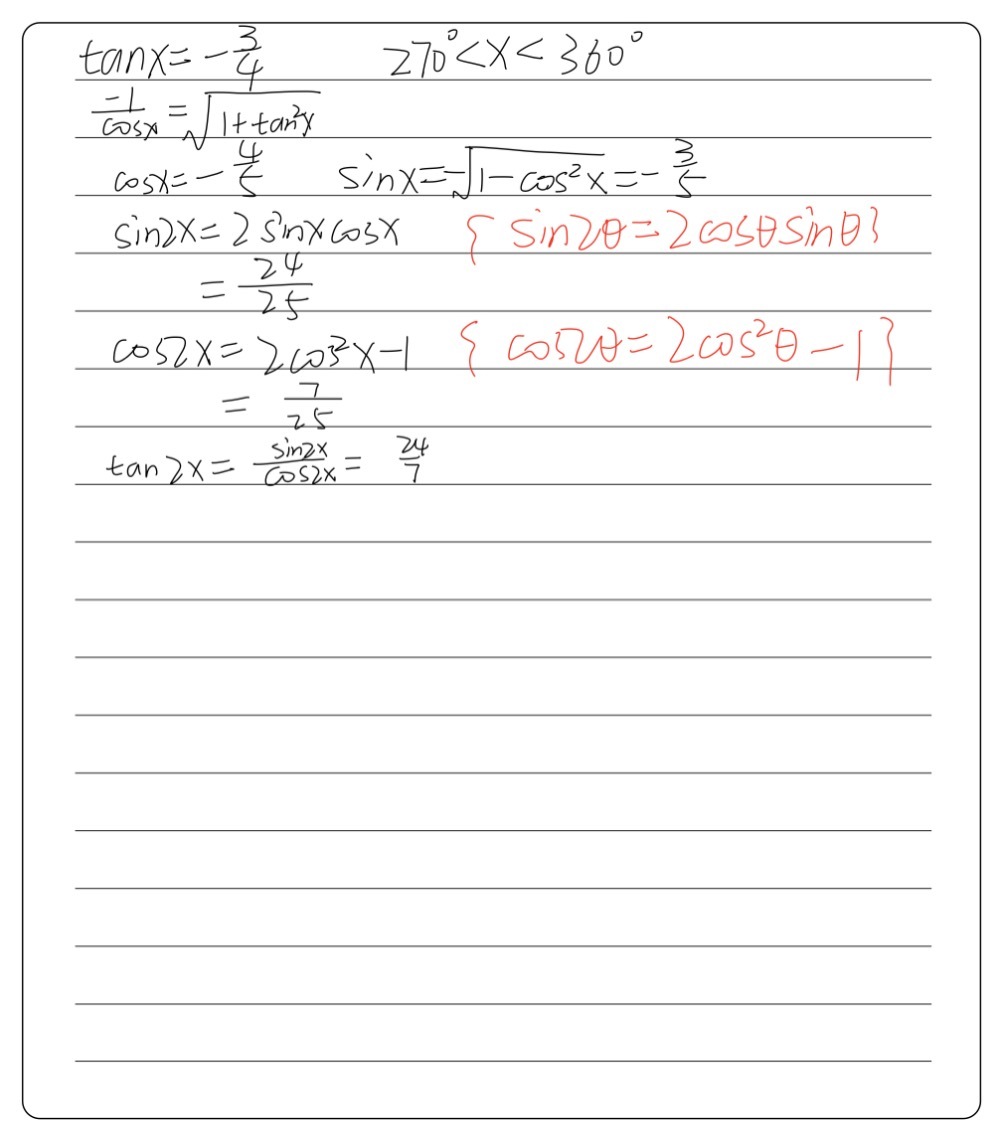 tanx = -3/4 270° < x < 360°
-1/cosx = √(1+tan²x)
cosx = -4/5 sinx = -√(1-cos²x) = -3/5
sin2x = 2 sinx cosx { sin2θ = 2cosθsinθ}
= 24/25
cos2x = 2cos²x-1 { cos2θ = 2cos²θ - 1 }
= 7/25
tan2x = sin2x/cos2x = 24/7